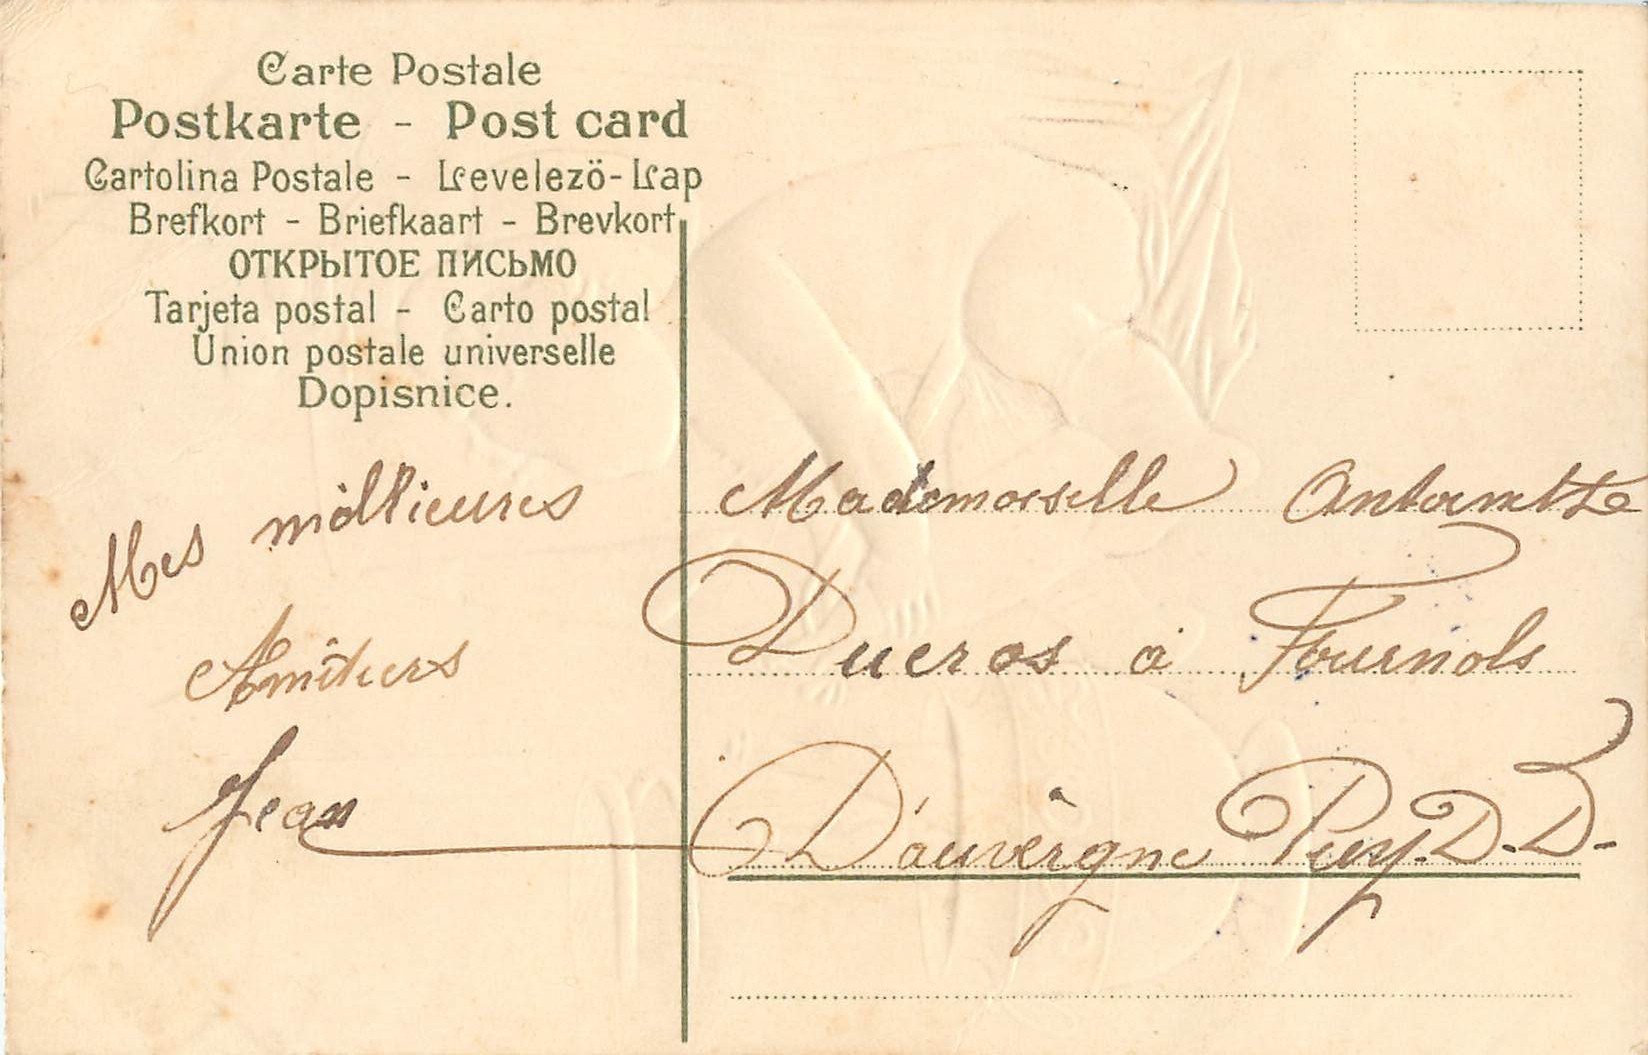 Carte Postale
Postkarte - Post card
Cartolina Postale - Levelezö-Lap
Brefkort - Briefkaart - Brevkort
ОТКРЫТОЕ ПИСЬМО
Tarjeta postal - Carto postal
Union postale universelle
Dopisnice.
Mes meillieures
Amitiers
Jean
Mademoiselle Antoinette
Ducros à Fournols
D'auvèrgne Puy.D.D-